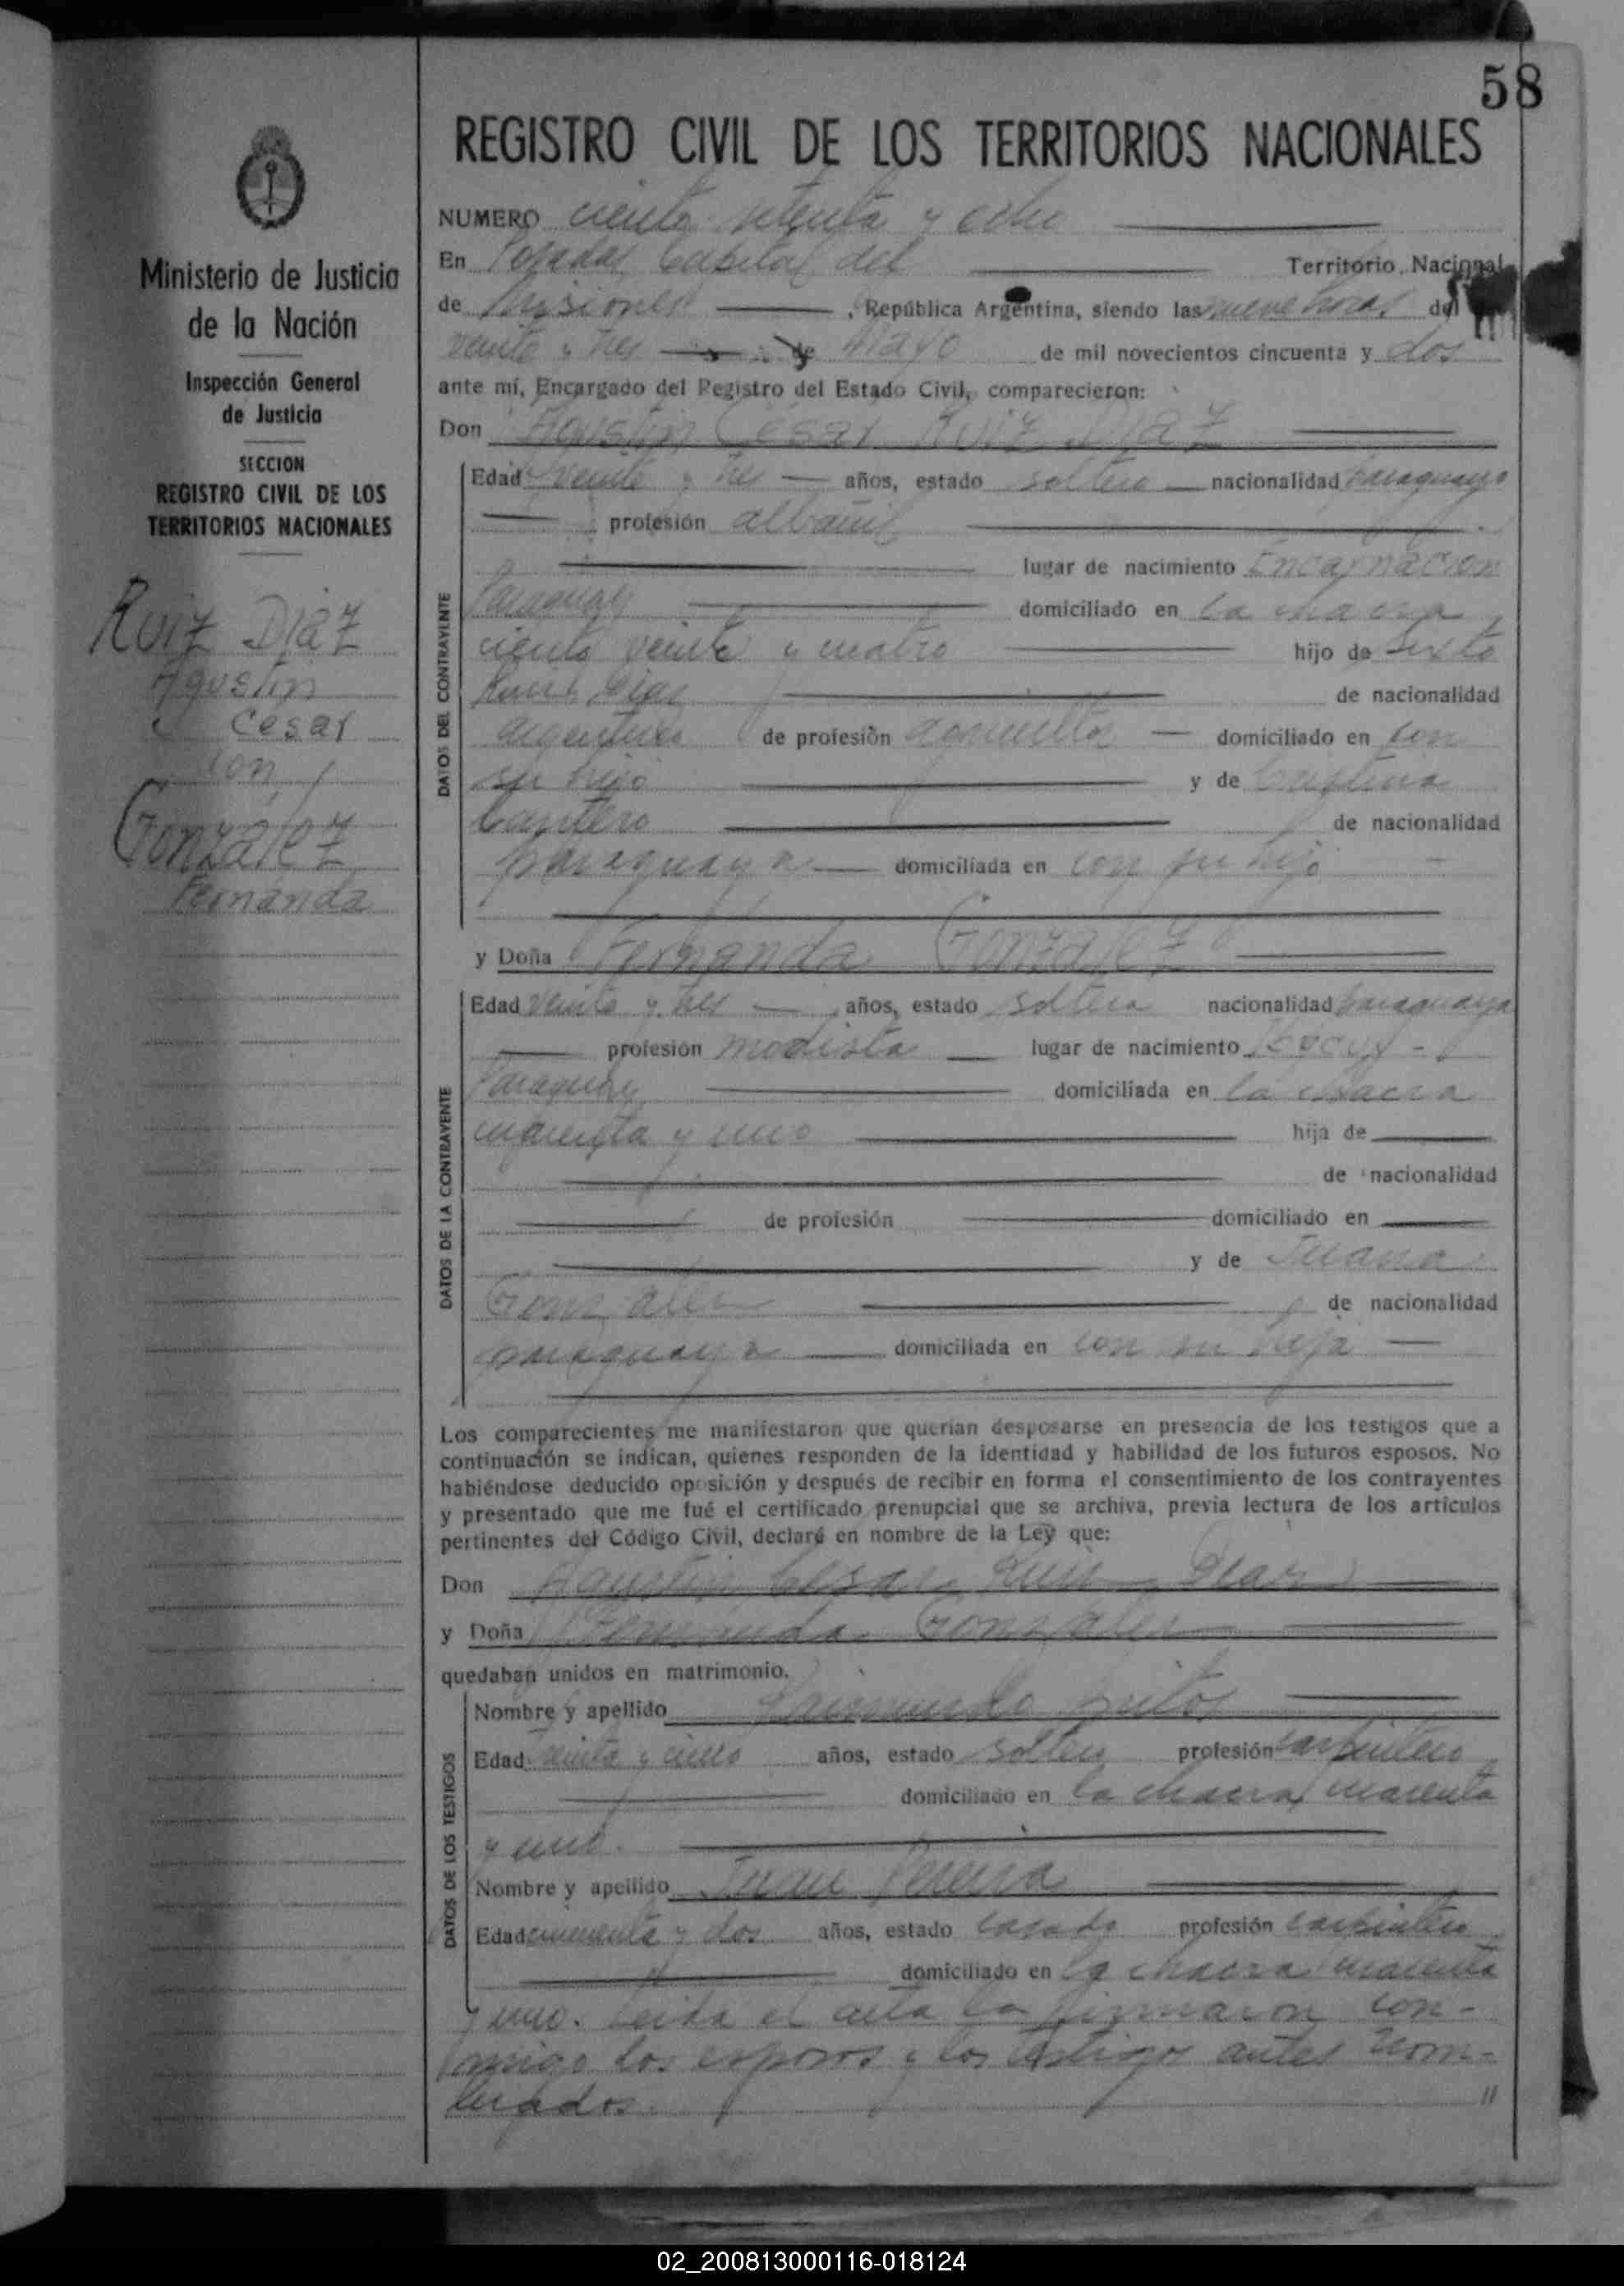 58
REGISTRO CIVIL DE LOS TERRITORIOS NACIONALES
Ministerio de Justicia
de la Nación
Inspección General
de Justicia
SECCION
REGISTRO CIVIL DE LOS
TERRITORIOS NACIONALES
Ruiz Diaz
Agustin
Cesar
con
González
Fernanda
NUMERO ciento setenta y ocho
En Posadas Capital del Territorio Nacional
de Misiones , República Argentina, siendo las nueve horas del
veinte y tres de Mayo de mil novecientos cincuenta y dos
ante mí, Encargado del Registro del Estado Civil, comparecieron:
Don Agustin César Ruiz Diaz
DATOS DEL CONTRAYENTE
Edad veinte y tres años, estado soltero nacionalidad paraguayo
profesión albañil
lugar de nacimiento Encarnacion
Paraguay domiciliado en la chacra
ciento veinte y cuatro hijo de Sixto
Ruiz Diaz de nacionalidad
argentino de profesión agricultor domiciliado en con
su hijo y de Cristina
de nacionalidad
paraguaya domiciliada en con su hijo
y Doña Fernanda González
DATOS DE LA CONTRAYENTE
Edad veinte y tres años, estado soltera nacionalidad paraguaya
profesión modista lugar de nacimiento
Paraguay domiciliada en la chacra
cuarenta y uno hija de
de nacionalidad
de profesión domiciliado en
y de Juana
Gonzalez de nacionalidad
paraguaya domiciliada en con su hija
Los comparecientes me manifestaron que querían desposarse en presencia de los testigos que a
continuación se indican, quienes responden de la identidad y habilidad de los futuros esposos. No
habiéndose deducido oposición y después de recibir en forma el consentimiento de los contrayentes
y presentado que me fué el certificado prenupcial que se archiva, previa lectura de los artículos
pertinentes del Código Civil, declaré en nombre de la Ley que:
Don Agustin César Ruiz Diaz
y Doña Fernanda Gonzalez
quedaban unidos en matrimonio.
DATOS DE LOS TESTIGOS
Nombre y apellido Raimundo
Edad treinta y cinco años, estado soltero profesión carpintero
domiciliado en la chacra cuarenta
y uno.
Nombre y apellido Juan Pereira
Edad cincuenta y dos años, estado casado profesión carpintero
domiciliado en la chacra cuarenta
y uno. Leida el acta la firmaron con-
migo los esposos y los testigos antes nom-
brados. "
02_200813000116-018124